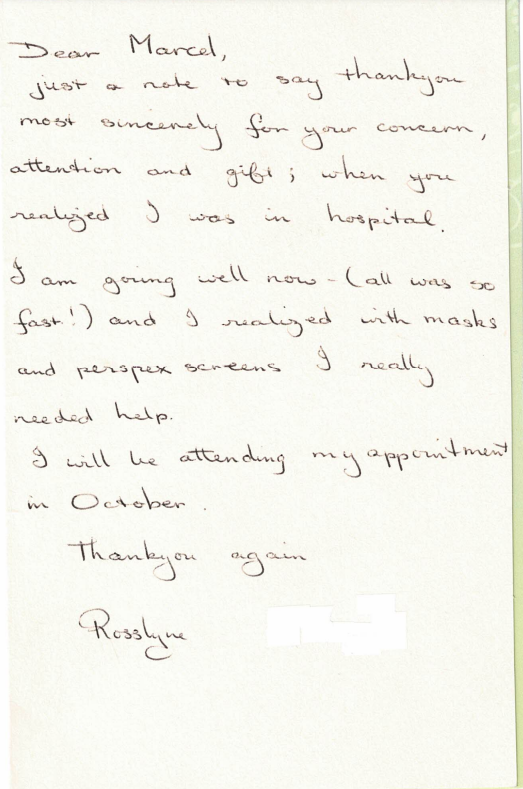 Dear Marcel,
just a note to say thankyou
most sincerely for your concern,
attention and gift; when you
realized I was in hospital.
I am going well now - (all was so
fast!) and I realized with masks
and perspex screens I really
needed help.
I will be attending my appointment
in October.
Thankyou again
Rosslyne